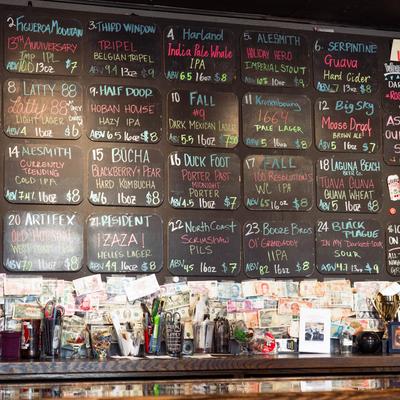 2 FIGUEROA MOUNTAIN
13TH ANNIVERSARY
IMP IPA
13oz $7
3 THIRD WINDOW
TRIPEL
BELGIAN TRIPEL
ABV 9.4 13oz $9
4 Harland
India Pale Whale
IPA
ABV 6.5 16oz $8
5 ALESMITH
HOLIDAY HERO
IMPERIAL STOUT
ABV 10% $9
6 SERPENTINE
Guava
Hard Cider
16oz $8
8 LATTY 88
Latty 88
LIGHT LAGER
ABV 4 16oz $6
9 HALF DOOR
HOBAN HOUSE
HAZY IPA
ABV 6.5 16oz $8
10 FALL
#9
DARK MEXICAN LAGER
ABV 5.5 16oz $7.50
11 Kronenbourg
1664
PALE LAGER
ABV 5.5 16oz $8
12 Big Sky
Moose Drool
BROWN ALE
ABV 5 16oz $8
14 ALESMITH
CURRENTLY
TRENDING
COLD IPA
ABV 7 16oz $8
15 BÜCHA
BLACKBERRY+PEAR
HARD KOMBUCHA
ABV 6 16oz $8
16 DUCK FOOT
PORTER PAST
MIDNIGHT
PORTER
ABV 4.5 16oz $7
17 FALL
168 RESOLUTIONS
WC IPA
ABV 16oz $8
18 LAGUNA BEACH
BEER CO.
TUAVA GUAVA
GUAVA WHEAT
ABV 5 16oz $8
20 ARTIFEX
WEST COAST IPA
ABV 7.2 16oz $8
21 PRESIDENT
¡ZAZA!
HELLES LAGER
ABV 4.9 16oz $8
22 North Coast
SCRIMSHAW
PILS
4.5 16oz $7
23 Booze Bros
OL' GRANDADDY
IIPA
ABV 8.2 16oz $8
24 BLACK
PLAGUE
IN MY DARKEST HOUR
SOUR
ABV 4.7 13oz $9